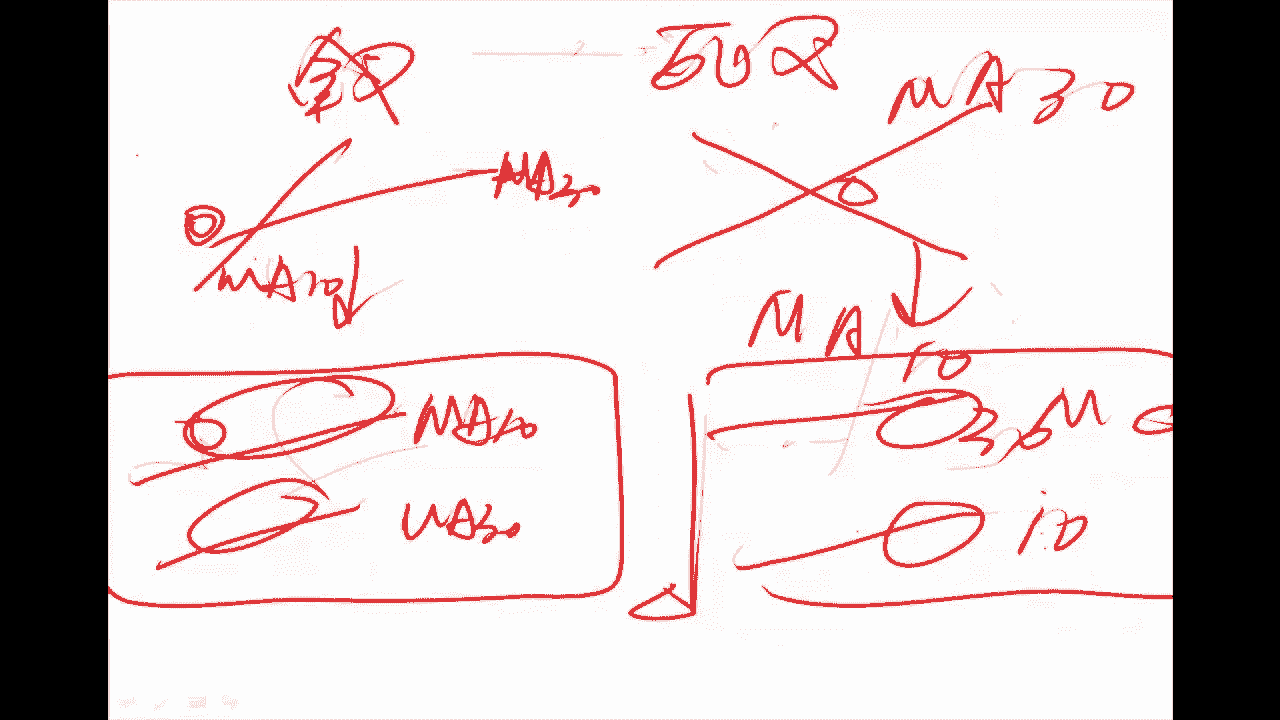 金叉 死叉
MA30
MA30
MA10
MA
10
MA10
30M
MA30
10